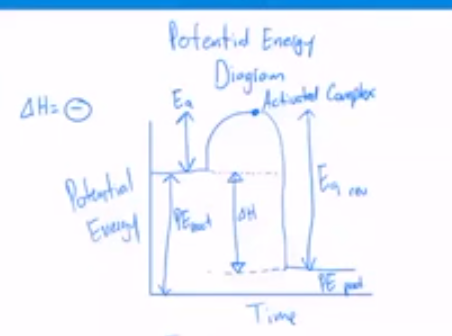 Potential Energy
Diagram
ΔH= ⊖
Ea
Activated Complex
Potential
Energy
PEreact
ΔH
Ea rev
PE prod
Time